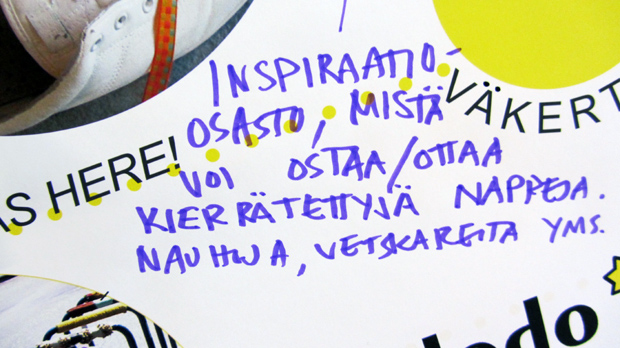 INSPIRAATIO-
OSASTO, MISTÄ
VÄKERT
AS HERE!
VOI OSTAA/OTTAA
KIERRÄTETTYJÄ NAPPEJA.
NAUHOJA, VETSKAREITA YMS.
dodo